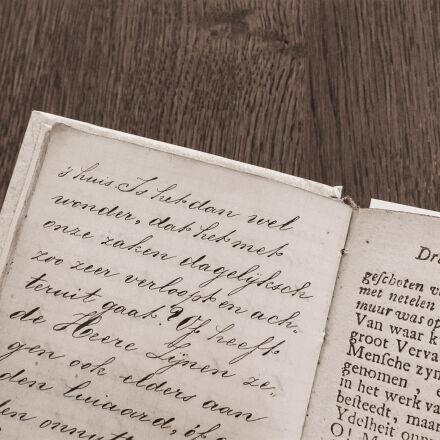 's huis. Is het dan wel
wonder, dat het met
onze zaken dagelijksch
zoo zeer verloopt en ach-
teruit gaat? Of heeft
de Heere Zijnen ze-
gen ook elders aan
den luiaard, óf a
den onnutt
Dr
geschoten v
met netelen
muur was op
Van waar k
groot Verva
Mensche zyn
genomen, e
in het werk va
besteedt, maar
Ydelheit onv